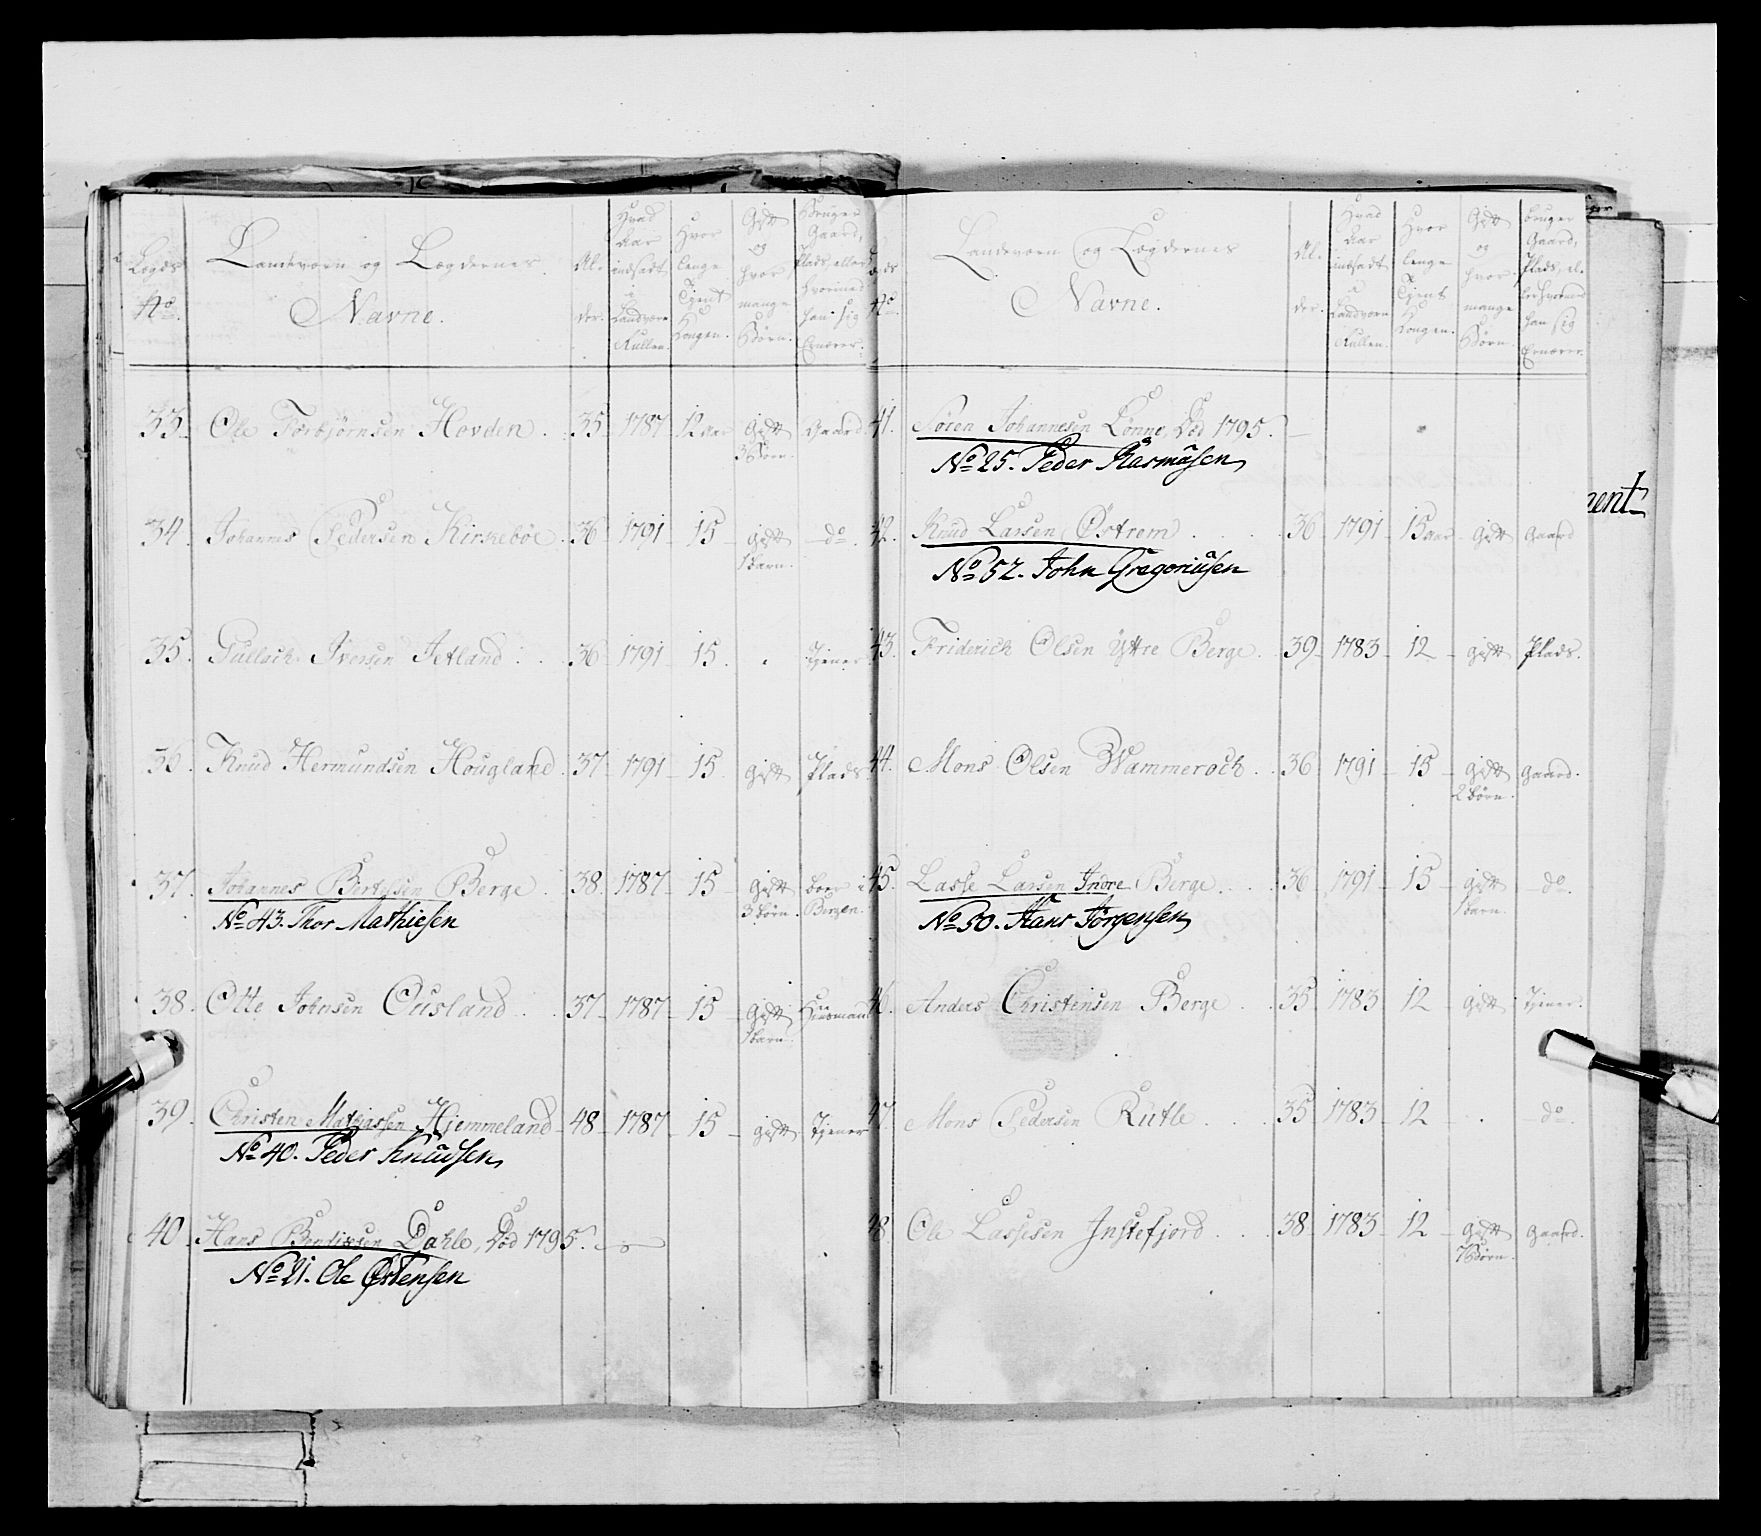 Lægds No.
Landeværn og Lægdernes Navne.
Al- der.
Hvad Aar indsadt i Landværn Rullen.
Hvor lenge Tjent Kongen.
Gift og hvor mange Børn.
Bruger Gaard, Plads, eller hvormed han sig Ernærer.
33. Ole Torbjørnsen Hovden. 35 1787 12 aar Gift Gaard
3 Børn.
34. Johannes Pedersen Kirkebøe 36 1791 15 gift do.
1 barn.
35. Gullach Iversen Jetland 36 1791 15 . Tjener
36. Knud Hermundsen Hougland 37 1791 15 gift Plads
37. Johannes Bertelsen Berge 38 1787 15 gift boer i
No 43. Thor Mathiesen 3 børn. Bergen.
38. Otte Johnsen Ousland 37 1787 15 gift Huusmand
1 barn.
39. Christen Mathiassen Hjemmeland 48 1787 15 gift Tjener
No 40. Peder Knudsen
40. Hans Bendixsen Dahle, Død 1795.
No 21. Ole Østensen
No.
Landeværn og Lægdernes Navne.
Al- der.
Hvad Aar indsadt i Landværn Rullen.
Hvor lenge Tjent Kongen.
Gift og hvor mange Børn.
bruger Gaard, Plads, el- ler hvormed han sig Ernærer.
41. Søren Johannesen Lønne, Død 1795.
No 25. Peder Rasmusen
ment
42. Knud Larsen Østrem 36 1791 15 aar gift gaard
No 52. John Gregoriusen
43. Friderich Olsen Yttre Berge 39 1783 12 gift Plads.
44. Mons Olsen Wammeroch 36 1791 15 gift gaard.
2 børn.
45. Lasse Larsen Indre Berge 36 1791 15 gift do.
No 50. Hans Jørgensen 1 barn.
46. Anders Christensen Berge 35 1783 12 gift Tjener.
47. Mons Pedersen Rutle 35 1783 12 . do.
48. Ole Lassesen Instefjord 38 1783 12 gift gaard.
7 Børn.